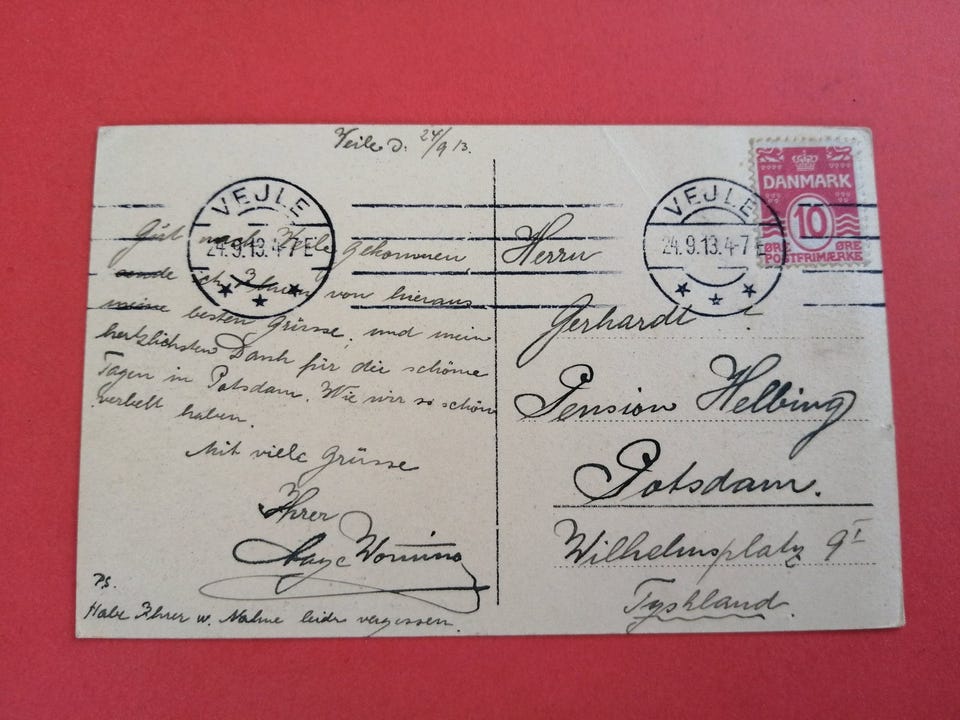 Veile D. 24/9 13.
VEJLE
24.9.13.4-7 E
Gut nach Veile gekommen
sende ich Ihnen von hieraus
meine besten Grüsse, und mein
hertzlichsten Dank für die schöne
Tagen in Potsdam. Wie wir so schön
verlebt haben.
Mit viele Grüsse
Ihrer
Aage
PS.
Habe Ihrer w. Nahme leider vergessen.
VEJLE
24.9.13.4-7 E
DANMARK
10
ØRE ØRE
POSTFRIMÆRKE
Herrn
Gerhardt !
Pension Helbing
Potsdam.
Wilhelmsplatz 9I
Tyskland.